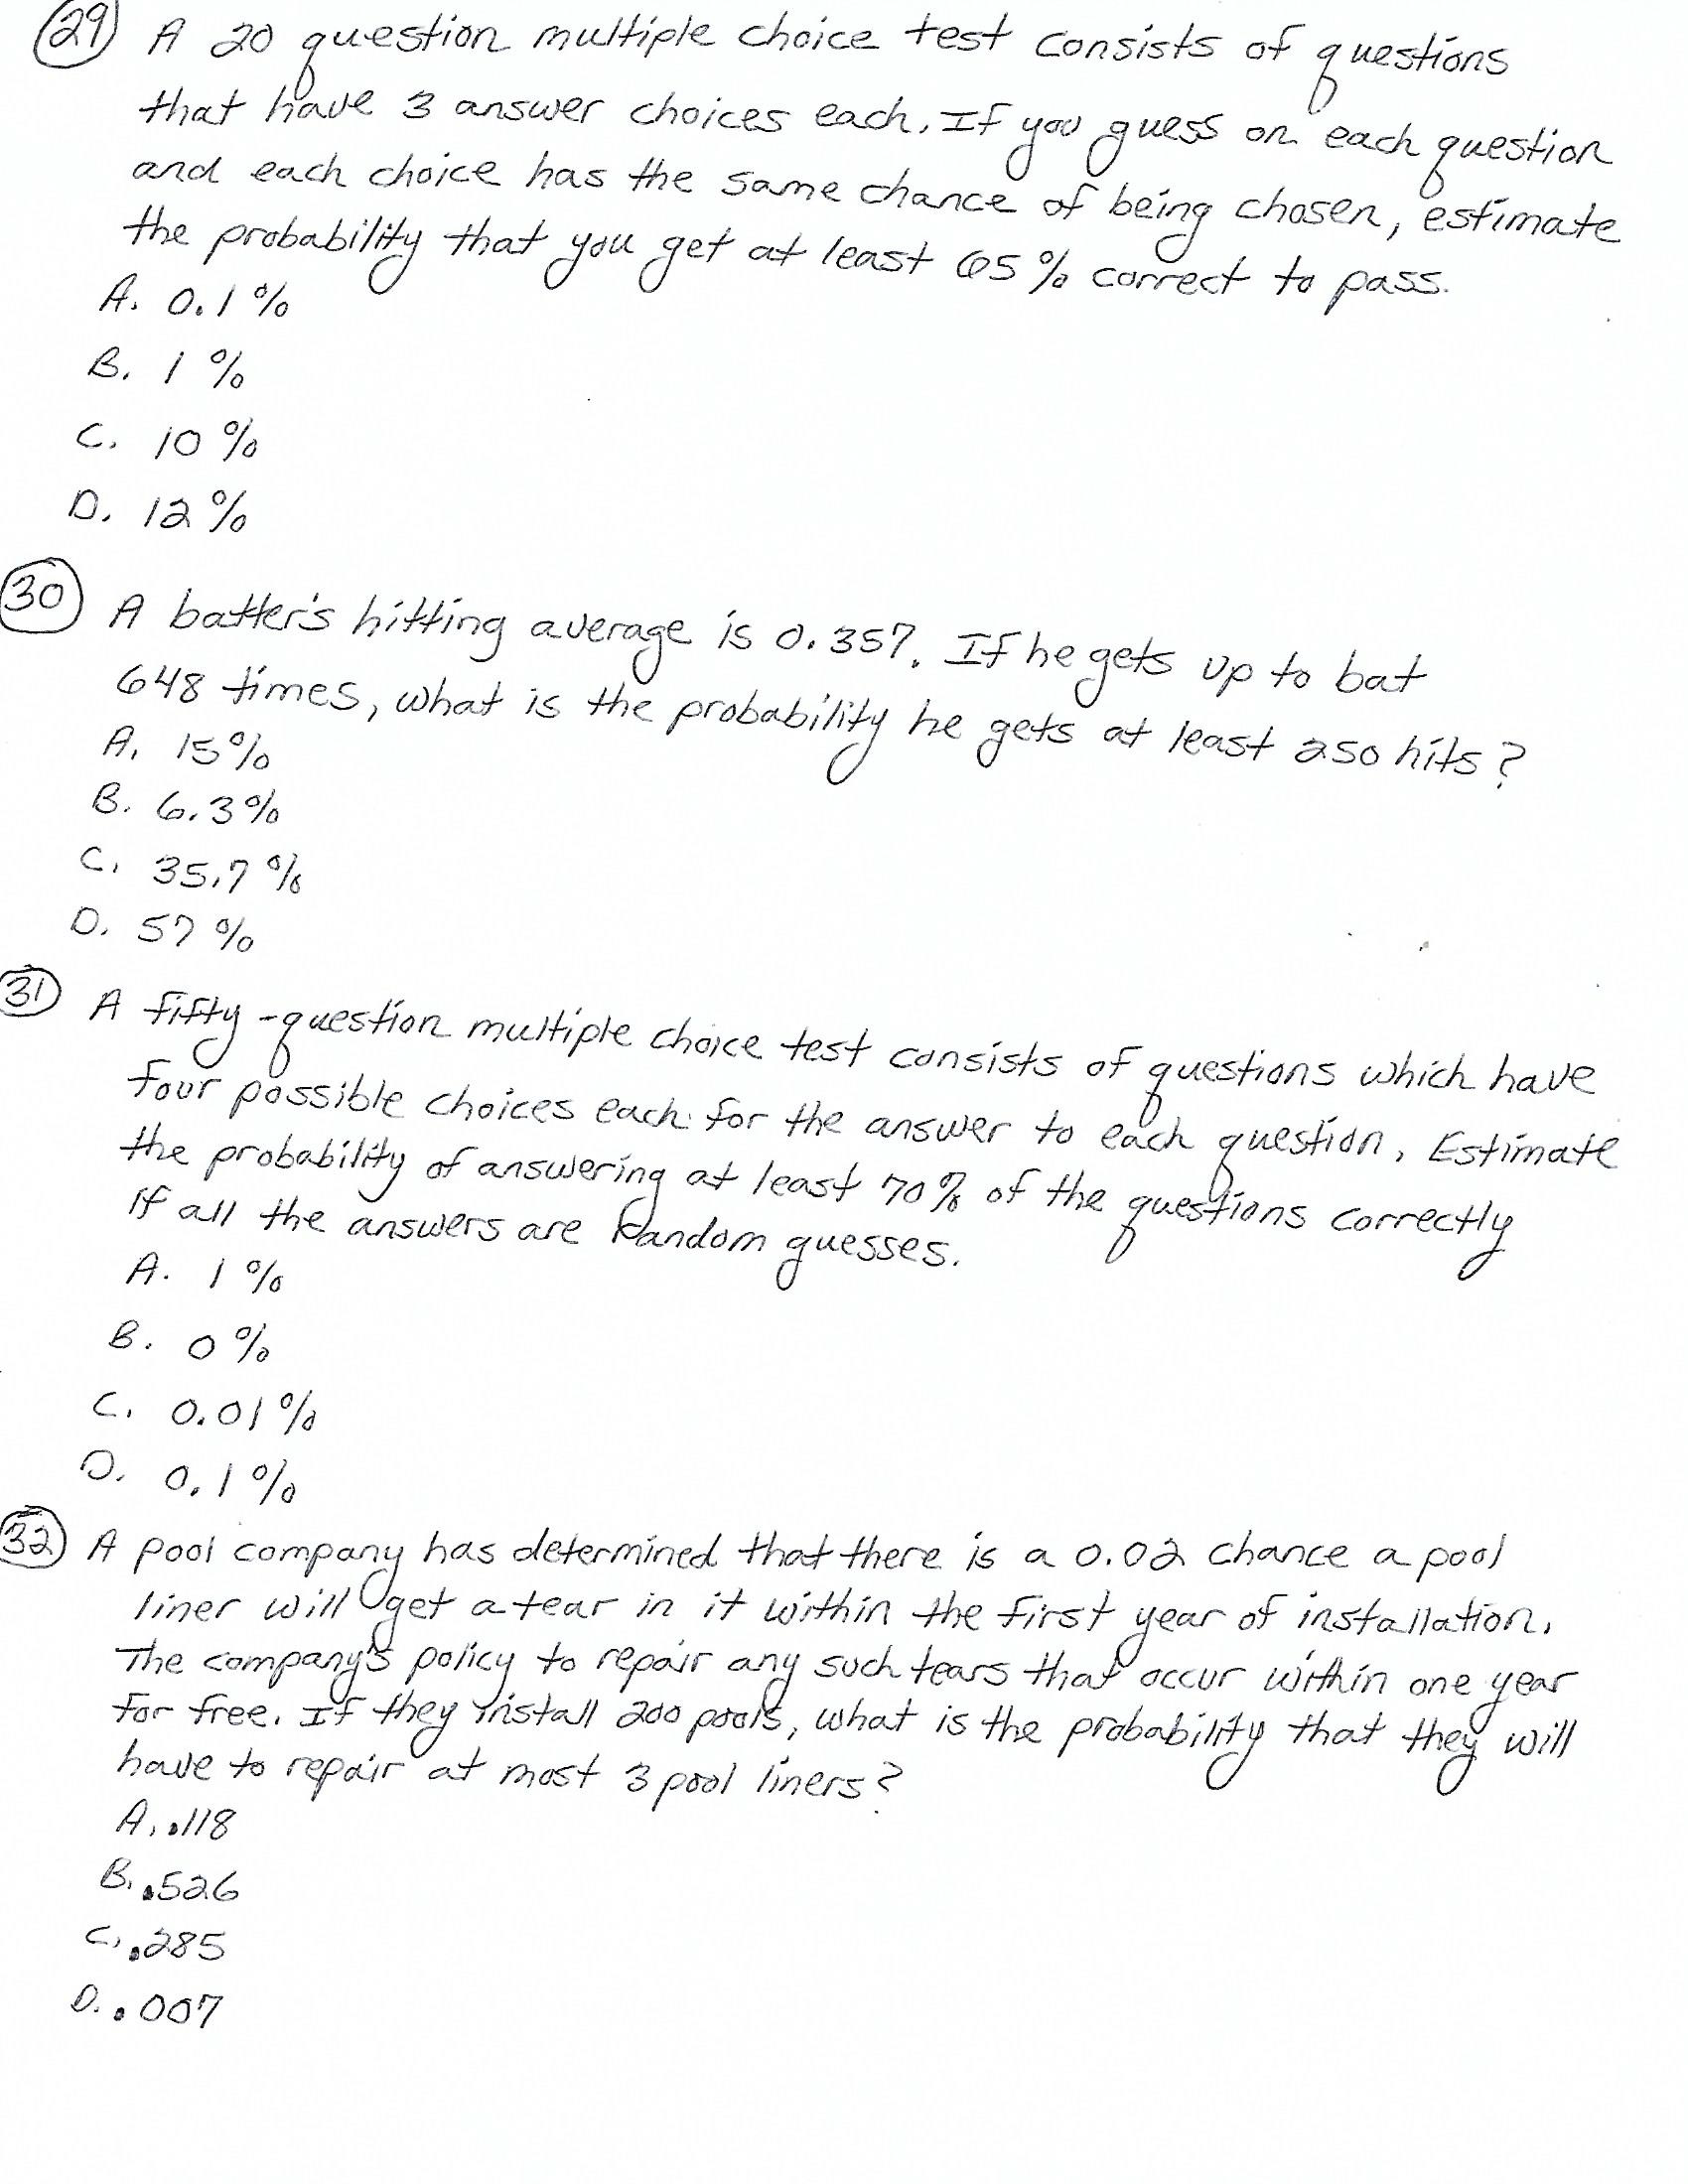 29 A 20 question multiple choice test consists of questions
that have 3 answer choices each. If you guess on each question
and each choice has the same chance of being chosen, estimate
the probability that you get at least 65% correct to pass.
A. 0.1%
B. 1%
C. 10%
D. 12%
30 A batter's hitting average is 0.357. If he gets up to bat
648 times, what is the probability he gets at least 250 hits?
A. 15%
B. 6.3%
C. 35.7%
D. 57%
31 A fifty-question multiple choice test consists of questions which have
four possible choices each for the answer to each question. Estimate
the probability of answering at least 70% of the questions correctly
if all the answers are Random guesses.
A. 1%
B. 0%
C. 0.01%
D. 0.1%
32 A pool company has determined that there is a 0.02 chance a pool
liner will get a tear in it within the first year of installation.
The company's policy to repair any such tears that occur within one year
for free. If they install 200 pools, what is the probability that they will
have to repair at most 3 pool liners?
A. .118
B. .526
C. .285
D. .007